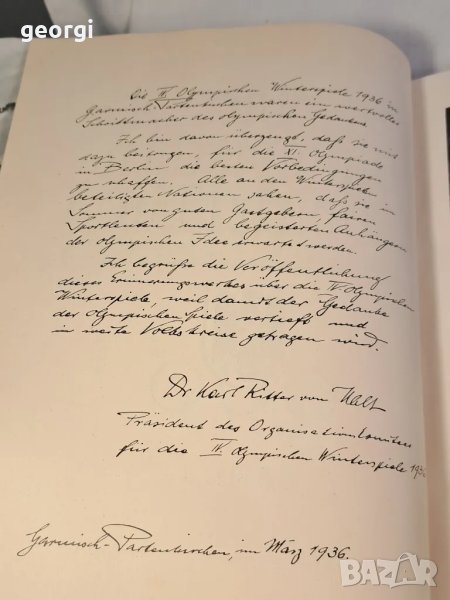 georgi
Die IV. Olympischen Winterspiele 1936 in
Garmisch-Partenkirchen waren ein wertvoller
Schrittmacher des olympischen Gedankens.
Ich bin davon überzeugt, daß sie viel
dazu beitragen, für die XI. Olympiade
in Berlin die besten Vorbedingungen
zu schaffen. Alle an den Winterspielen
beteiligten Nationen sahen, daß sie im
Sommer von guten Gastgebern, fairen
Sportleuten und begeisterten Anhängern
der olympischen Idee erwartet werden.
Ich begrüße die Veröffentlichung
dieses Erinnerungswerkes über die IV. Olympischen
Winterspiele, weil damit der Gedanke
der Olympischen Spiele vertieft und
in weite Volkskreise getragen wird.
Dr Karl Ritter von Halt
Präsident des Organisationskomitees
für die IV. olympischen Winterspiele 1936
Garmisch-Partenkirchen, im März 1936.
BAZAR